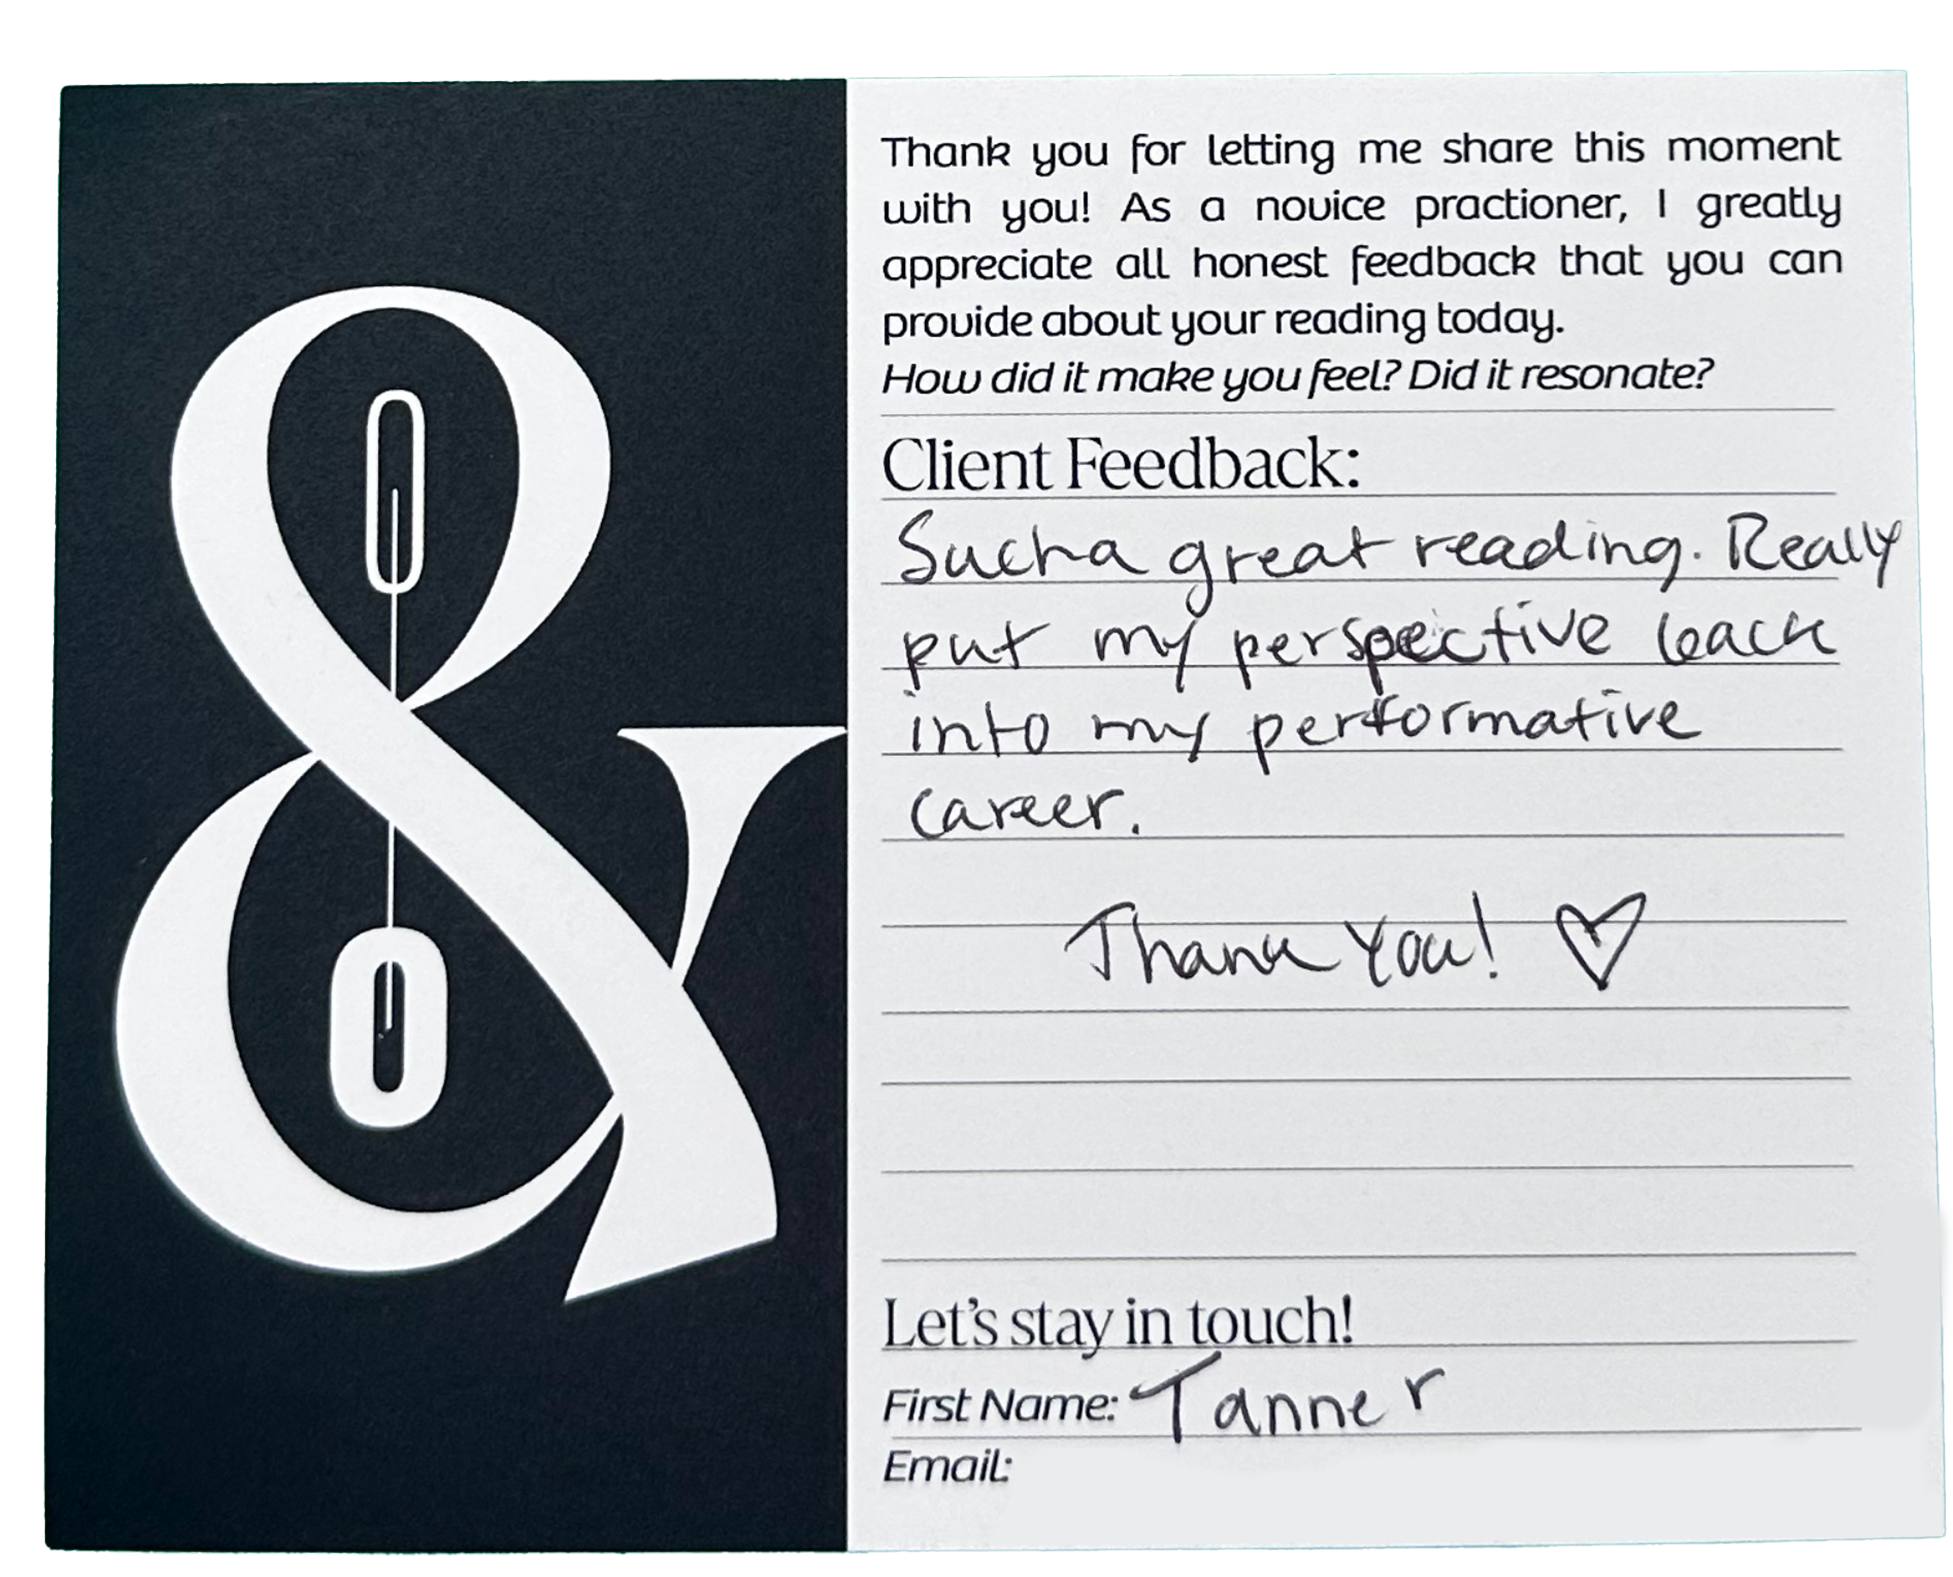 &
Thank you for letting me share this moment
with you! As a novice practioner, I greatly
appreciate all honest feedback that you can
provide about your reading today.
How did it make you feel? Did it resonate?
Client Feedback:
Such a great reading. Really
put my perspective back
into my performative
career.
Thank You! ♡
Let's stay in touch!
First Name: Tanner
Email: